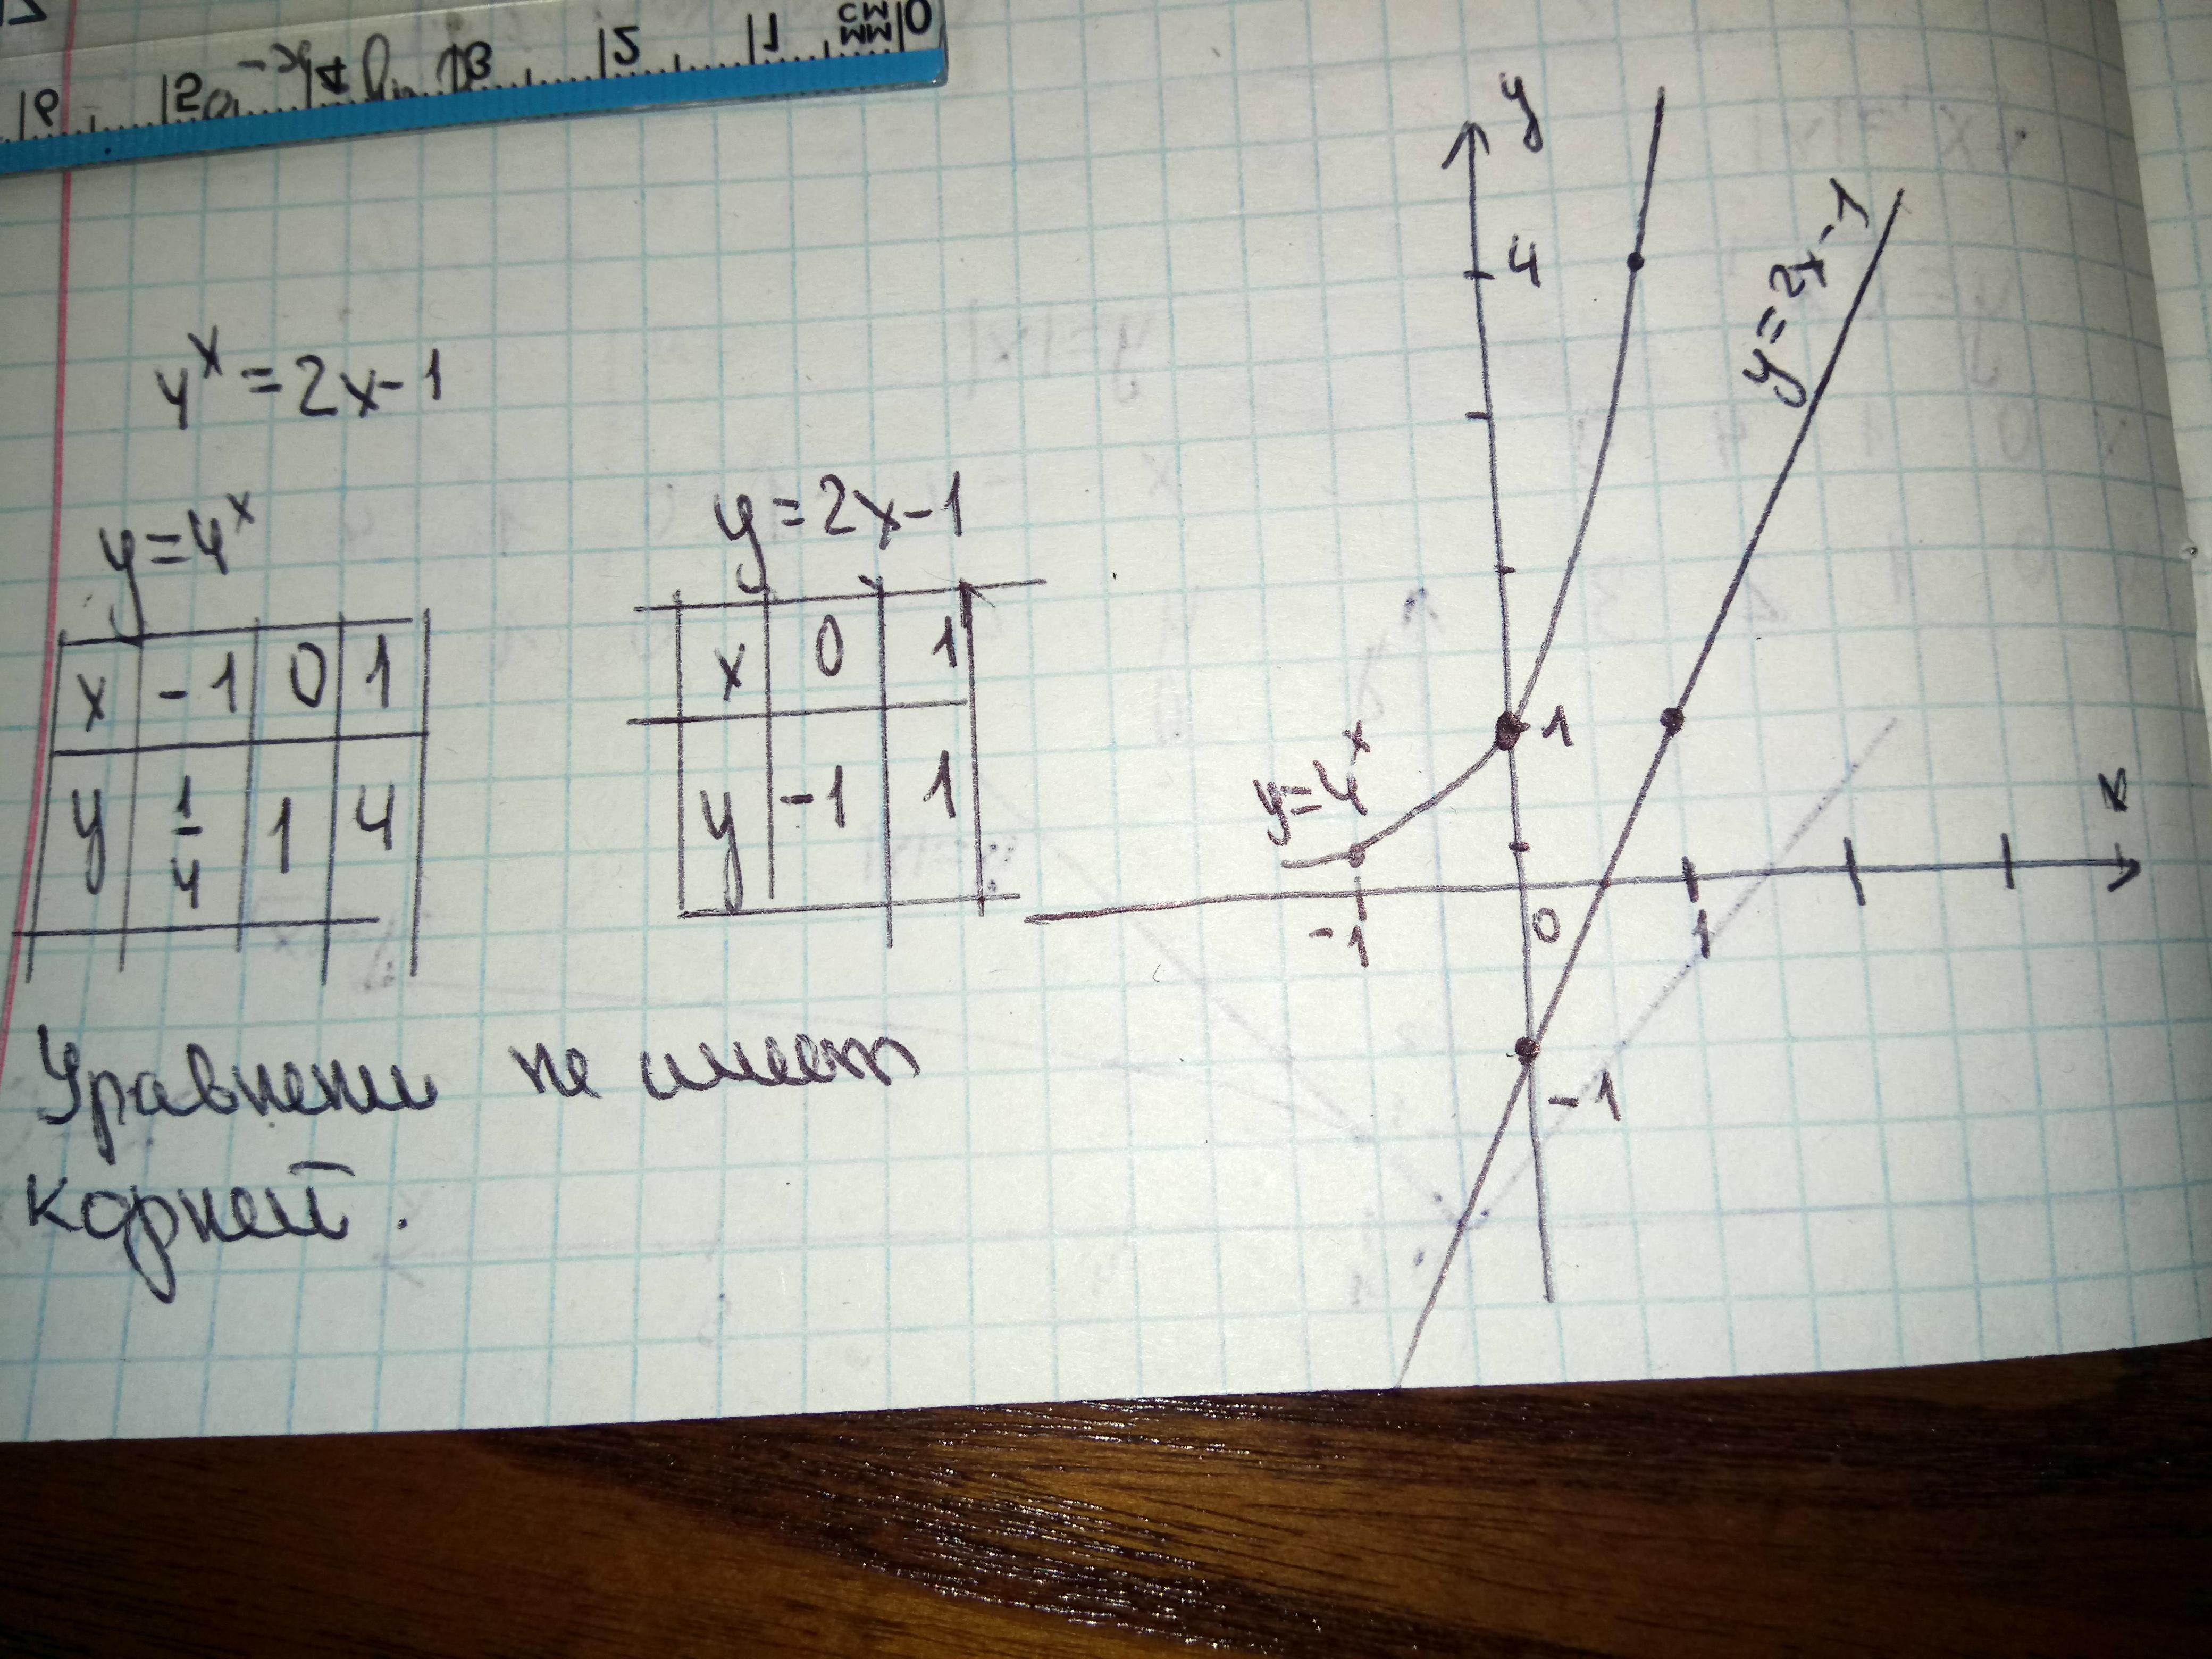 4ˣ = 2x-1
y=4ˣ
x -1 0 1
y 1/4 1 4
y=2x-1
x 0 1
y -1 1
Уравнени не имеет
корней.
y
4
1
y=4ˣ
y=2x-1
-1 0 1
x
-1
0 1 2 3 4 5 6
СМ
ММ